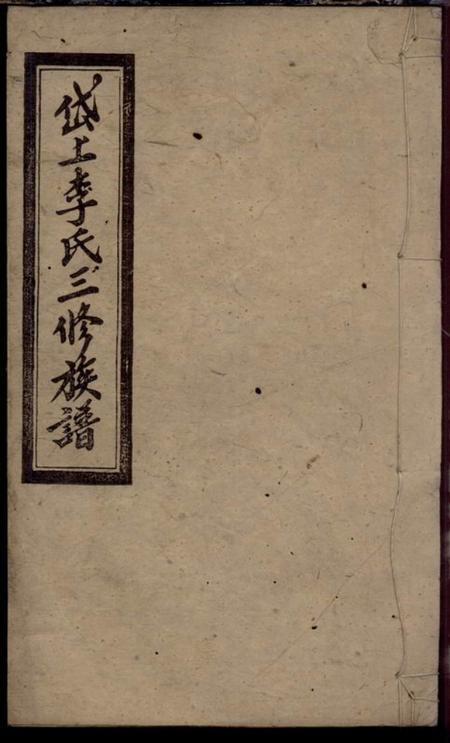 岱上李氏三修族譜